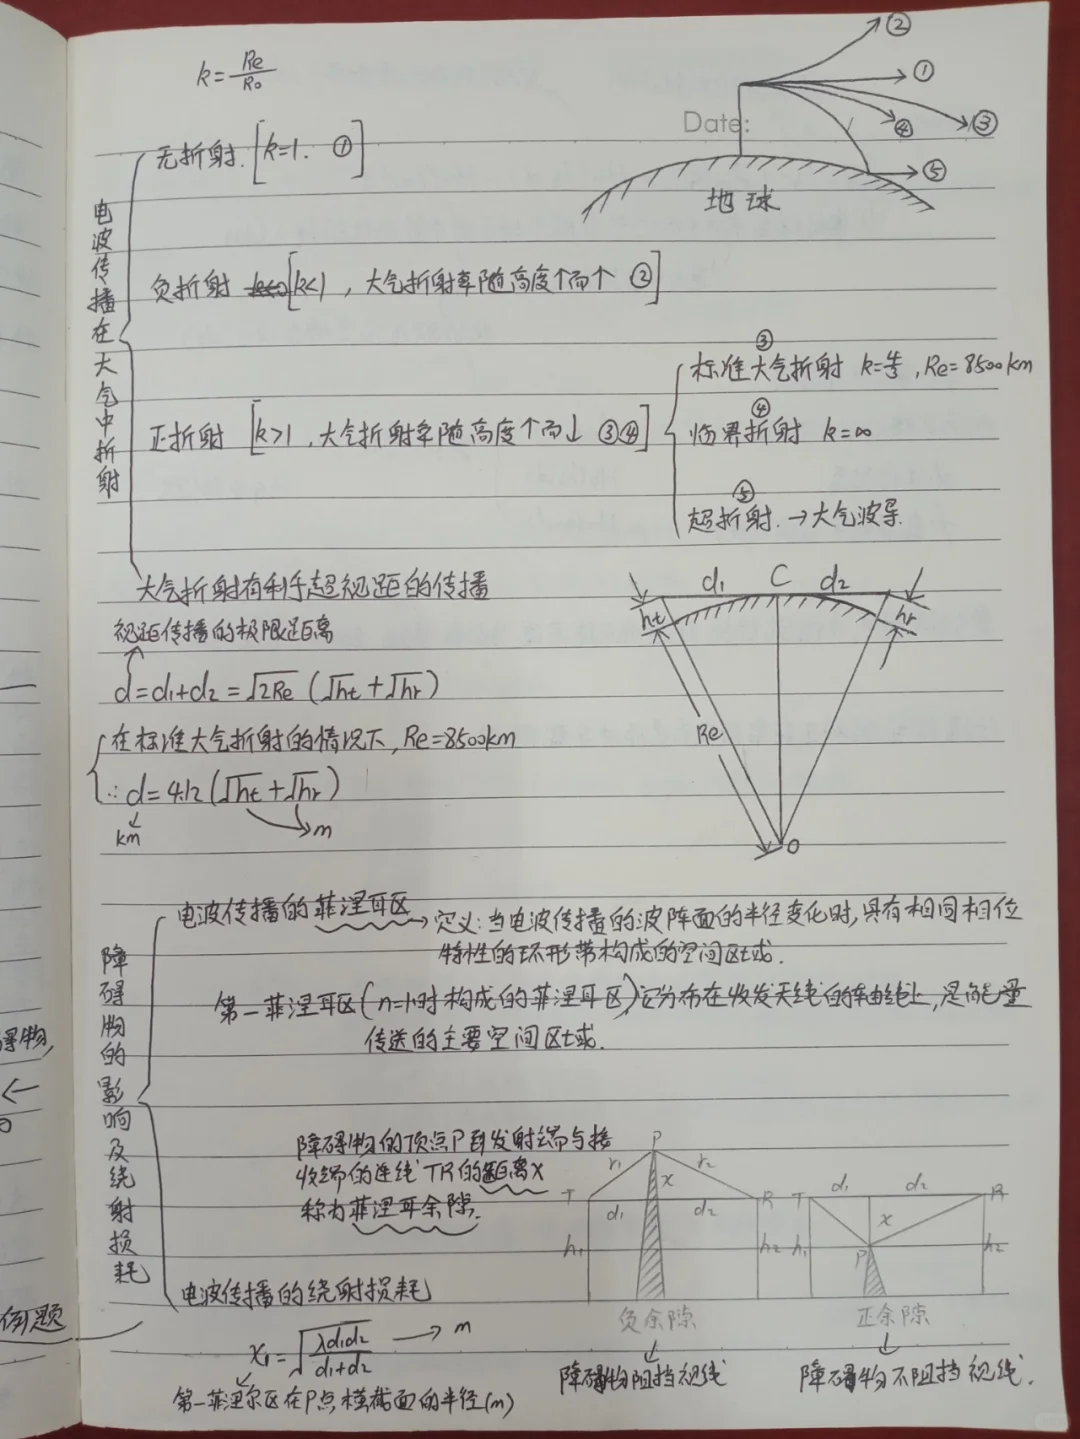 k=Re/R0
②
①
Date:
④
③
⑤
地球
电波传播在大气中折射
无折射.[k=1. ①]
负折射 [k<1，大气折射率随高度↑而↑ ②]
正折射 [k>1，大气折射率随高度↑而↓ ③④]
③
标准大气折射 k=4/3，Re=8500km
④
临界折射 k=∞
⑤
超折射.→大气波导
大气折射有利于超视距的传播
视距传播的极限距离
d=d1+d2=√2Re (√ht+√hr)
在标准大气折射的情况下，Re=8500km
∴d=4.12(√ht+√hr)
km
m
d1 C d2
ht
hr
Re
O
障碍物的影响及绕射损耗
电波传播的菲涅耳区→定义:当电波传播的波阵面的半径变化时,具有相同相位
特性的环形带构成的空间区域.
第一菲涅耳区(n=1时构成的菲涅耳区)它分布在收发天线的轴线上,是能量
传送的主要空间区域.
障碍物的顶点P到发射端与接
收端的连线TR的距离x
称为菲涅耳余隙.
P
r1 r2
T x R
d1 d2
h1 h2
负余隙
障碍物阻挡视线
d1 d2
T R
x
P
h1 h2
正余隙
障碍物不阻挡视线.
电波传播的绕射损耗
x1=√(λd1d2/(d1+d2)) →m
第一菲涅尔区在P点横截面的半径(m)
碍物,
←
例题